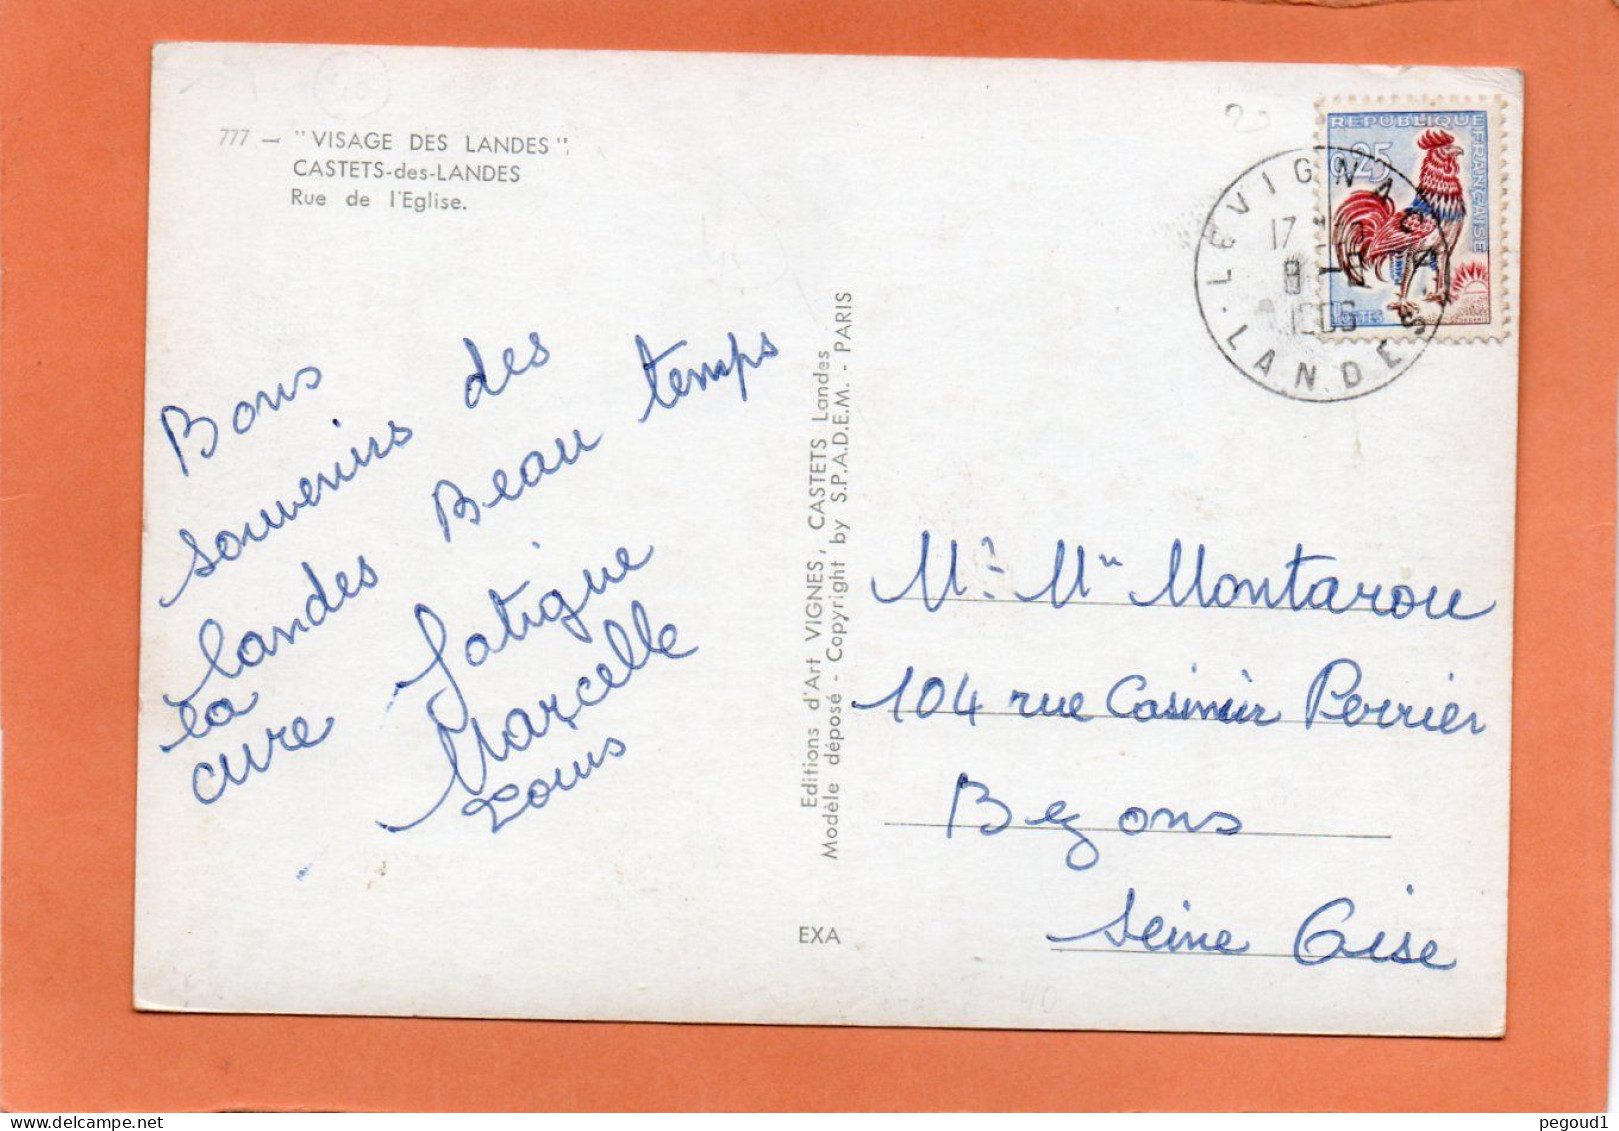 777 — "VISAGE DES LANDES"
CASTETS-des-LANDES
Rue de l'Eglise.
Bons
souvenirs des
landes Beau temps
la
cure fatigue
Marcelle
Louis
Editions d'Art VIGNES, CASTETS Landes
Modèle déposé - Copyright by S.P.A.D.E.M. - PARIS
EXA
REPUBLIQUE FRANÇAISE
0,25
POSTES
LEVIGNACQ
17
8
LANDES
Mr Mme Montarou
104 rue Casimir Perrier
Bezons
Seine Oise
pegoud1